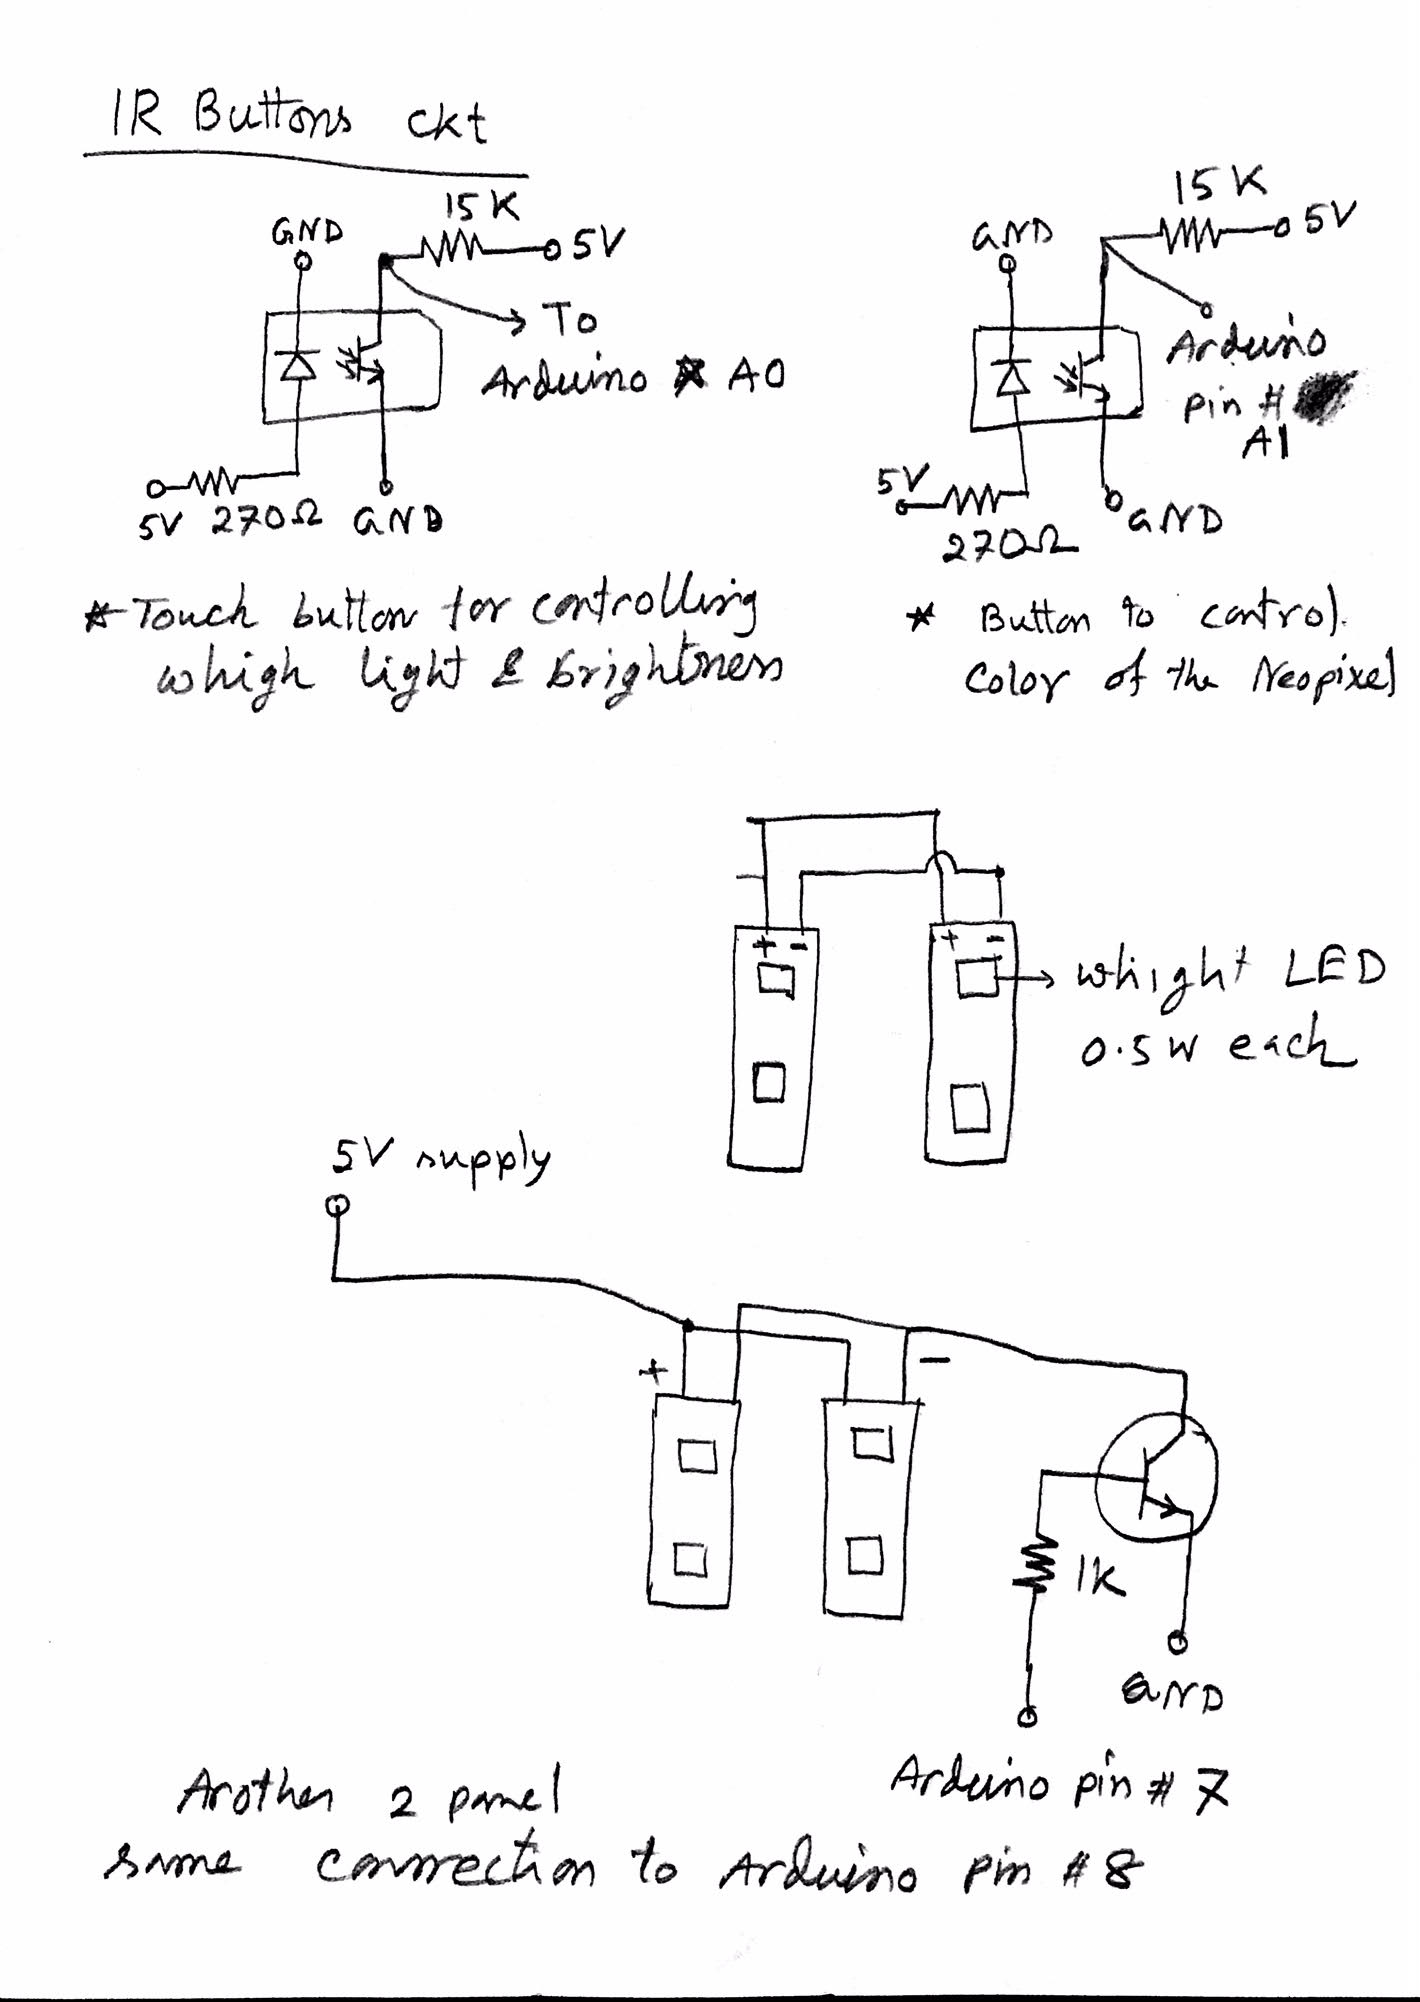 IR Buttons ckt
15K
GND
5V
To
Arduino A0
5V 270Ω GND
* Touch button for controlling
whigh light & brightness
15K
GND
5V
Arduino
pin #
A1
5V
270Ω
GND
* Button to control
Color of the Neopixel
+ -
+ -
whight LED
0.5W each
5V supply
+
-
1K
GND
Arduino pin # 7
Another 2 panel
same connection to Arduino pin # 8